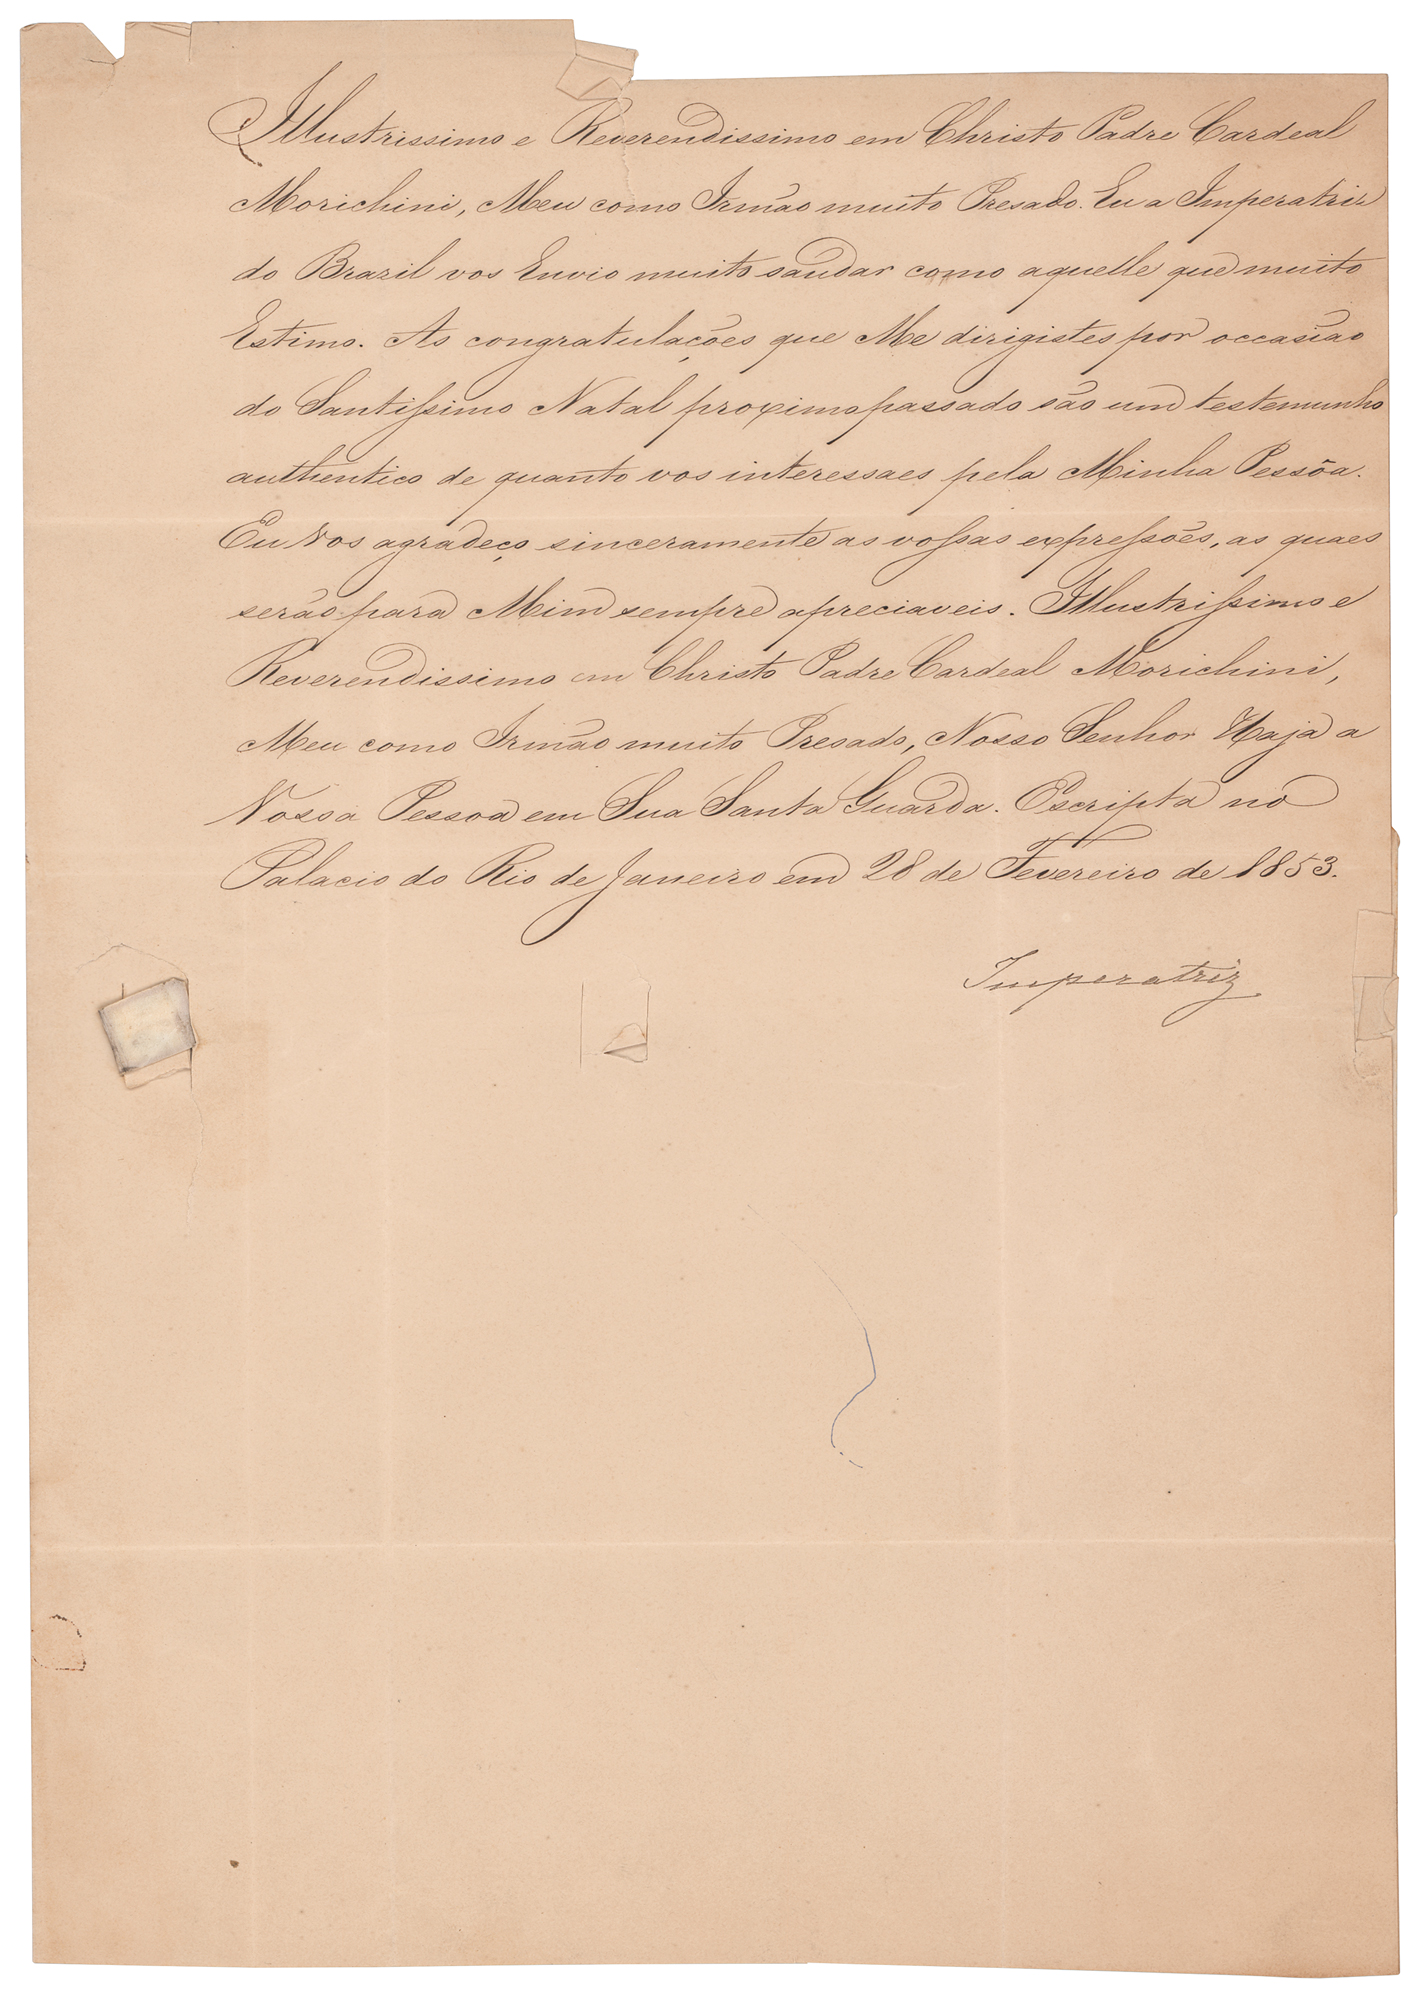 Illustrissimo e Reverendissimo em Christo Padre Cardeal
Morichini, Meu como Irmão muito Presado. Eu a Imperatriz
do Brazil vos Envio muito saudar como aquelle que muito
Estimo. As congratulações que Me dirigistes por occasião
do Santiſsimo Natal proximo passado são um testemunho
authentico de quanto vos interessaes pela Minha Pessôa.
Eu Vos agradeço sinceramente as voſsas expreſsões, as quaes
serão para Mim sempre apreciaveis. Illustriſsimo e
Reverendissimo em Christo Padre Cardeal Morichini,
Meu como Irmão muito Presado, Nosso Senhor Haja a
Vossa Pessoa em Sua Santa Guarda. Escripta no
Palacio do Rio de Janeiro em 28 de Fevereiro de 1853.
Imperatriz